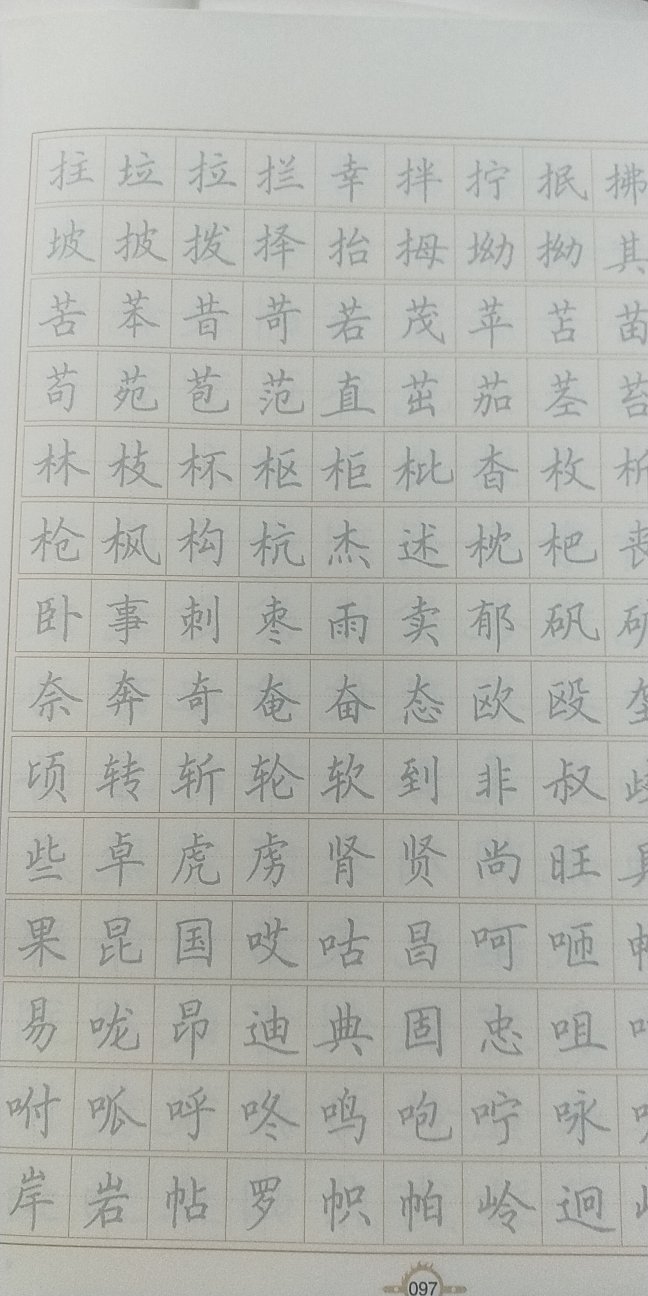 拄垃拉拦幸拌拧抿拂
坡披拨择抬拇坳拗其
苦苯昔苛若茂苹苫苗
苟苑苞范直茁茄茎苔
林枝杯枢柜枇杳枚析
枪枫构杭杰述枕杷丧
卧事刺枣雨卖郁矾矿
奈奔奇奄奋态欧殴垄
顷转斩轮软到非叔歧
些卓虎虏肾贤尚旺具
果昆国哎咕昌呵咂
易咙昂迪典固忠咀
咐呱呼咚鸣咆咛咏
岸岩帖罗帜帕岭迥
097